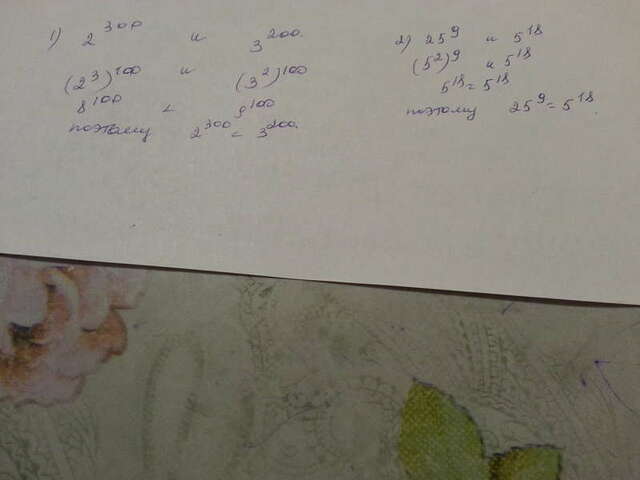 1) 2^300 и 3^200.
(2^3)^100 и (3^2)^100
8^100 < 9^100
поэтому 2^300 < 3^200.
2) 25^9 и 5^18
(5^2)^9 и 5^18
5^18 = 5^18
поэтому 25^9 = 5^18